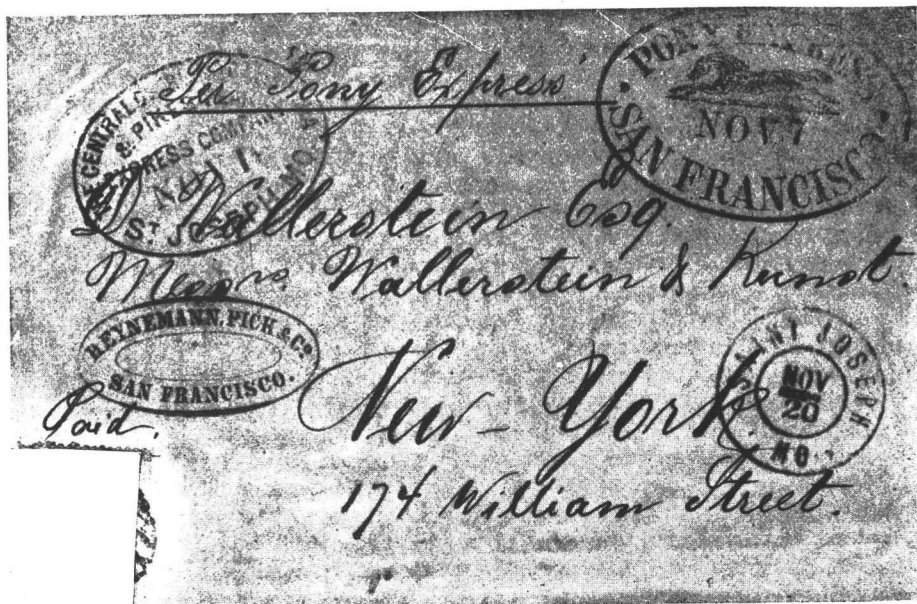 Per Pony Express
PONY EXPRESS
NOV 7
SAN FRANCISCO.
THE CENTRAL
& PIKE
EXPRESS COMPANY
ST JOSEPH MO.
D. Wallerstein Esq.
Messrs. Wallerstein & Kunst.
HEYNEMANN, PICK & Co
SAN FRANCISCO.
Paid.
New-York.
SAINT JOSEPH
NOV
20
MO.
174 William Street.